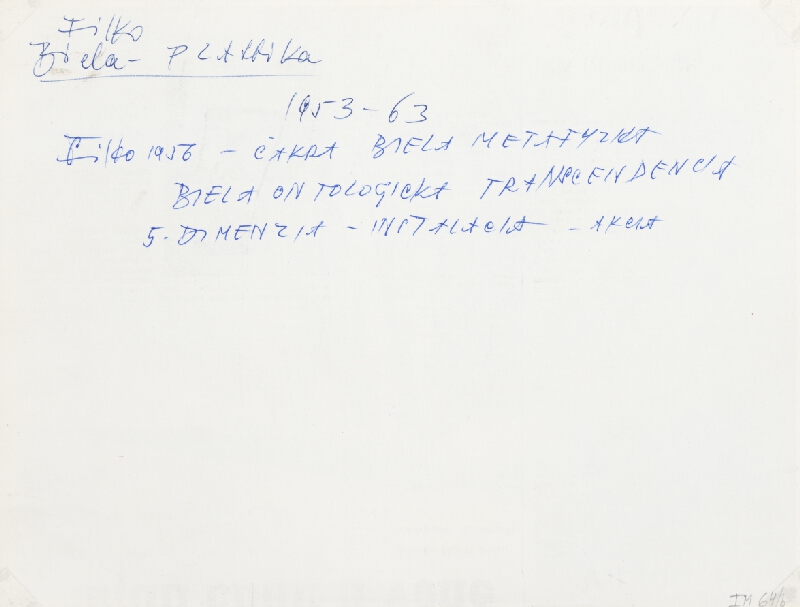 Filko
Biela - PLAStika
1953-63
Filko 1956 - ČAKRA BIELA METAFYZIKA
BIELA ONTOLOGICKA TRANSCENDENCIA
5. DIMENZIA - INŠTALACIA - AKCIA